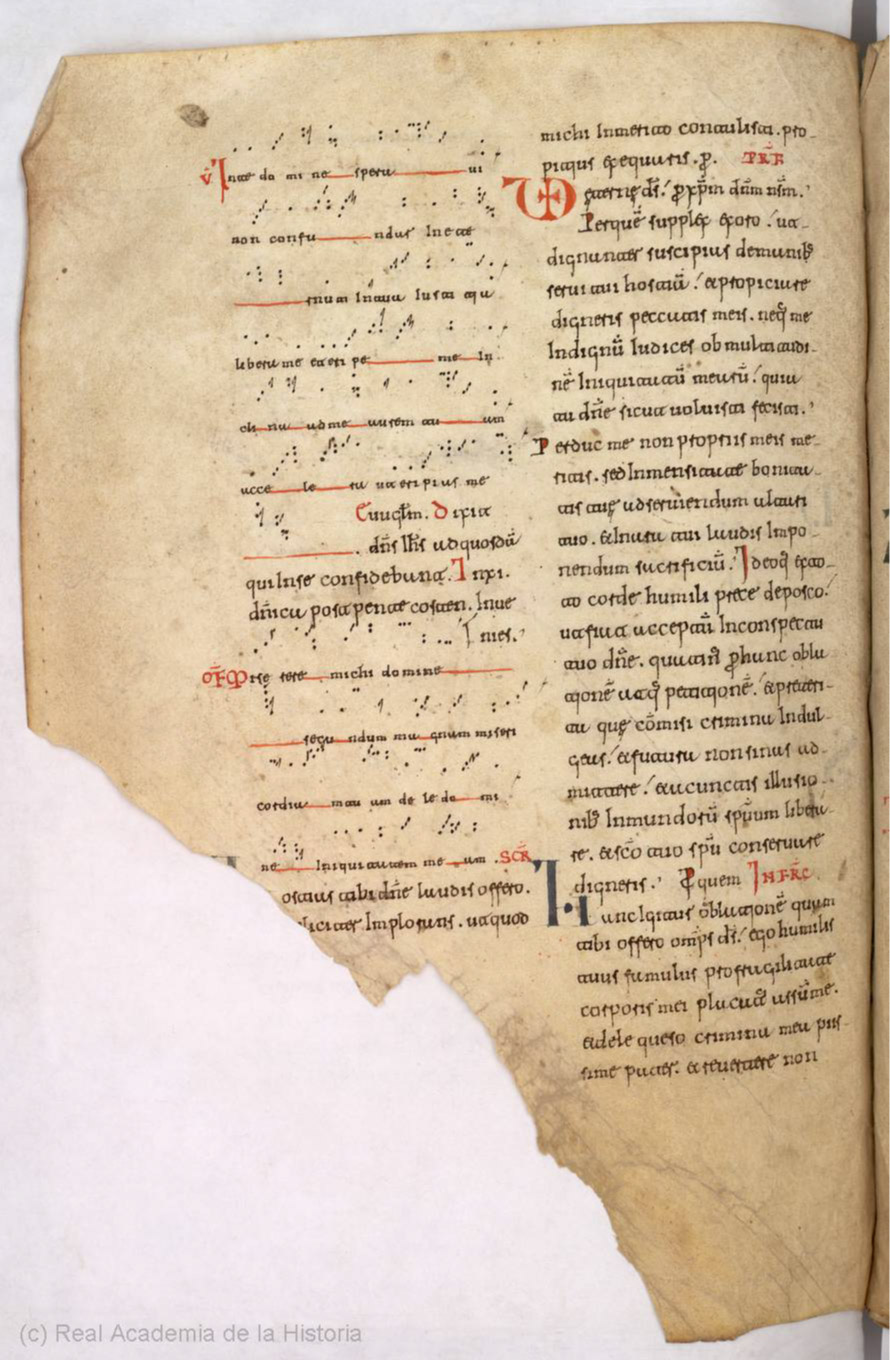 V̄ In te do mi ne spera ui
non confu ndar In ete
rnum In tua Iusti cia
libera me et eri pe me In
cli na ad me aurem tu am
acce le ra ut eripias me
Euuaglm. Dixit
dn̄s Ih̄s ad quosdā
qui In se confidebant. In xi.
dn̄ica post pentecosten. Inue
nies.
OF Mise rere michi domine
secu ndum ma gnam miseri
cordia m tu am de le do mi
ne Iniquitatem me am. SCR̄
ostias tibi dn̄e laudis offero.
liciter Implorans. ut quod
michi Inmerito contulisti. pro
pitius exequaris. p̱. PRF̄
eterne ds̄. p̱ xp̄m dn̄m nsm̄.
Per quē supplex exoro. ut
dignanter suscipias de manib;
serui tui hostiā. et propiciare
digneris peccatis meis. neq; me
Indignū Iudices ob multitudi
nē Iniquitatū mearū. quia
tu dn̄e sicut uoluisti fecisti.
Perduc me non propriis meis me
ritis. sed Inmensitate bonita
tis tuę ad seruiendum altari
tuo. et In ara tui laudis Impo
nendum sacrificiū. Ideoq; exto
to corde humili prece deposco.
ut fiat acceptū In conspectu
tuo dn̄e. quatin̄ p̱ hunc obla
tionē atq; petitionē. et preteri
ta quę cōmisi crimina Indul
geas. et futura non sinas ad
mittere. et a cunctis illusio
nib; Inmundorū spūum libera
re. et sc̄o tuo spū conseruare
digneris. P̱ quem INFRC̄
Hanc Igitur oblationē quam
tibi offero omp̄s ds̄. ego humilis
tuus famulus pro fragilitate
corporis mei placatus assūme.
et dele queso crimina mea piis
sime pater. et reuertere non
(c) Real Academia de la Historia